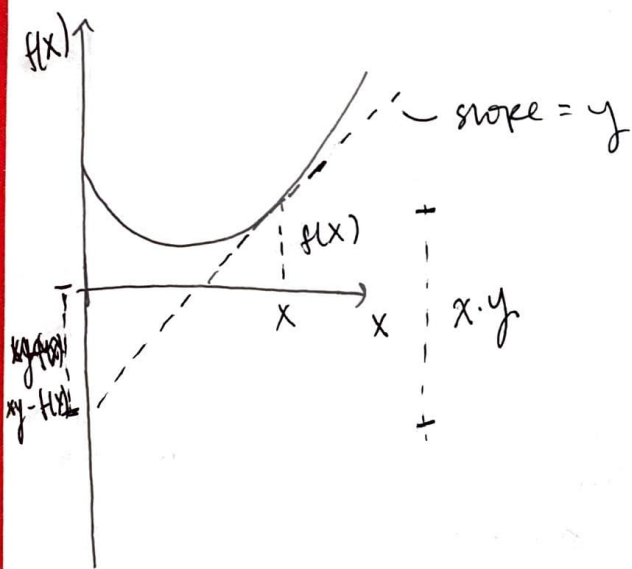 f(x)
slope = y
f(x)
x
x
x·y
xy - f(x)